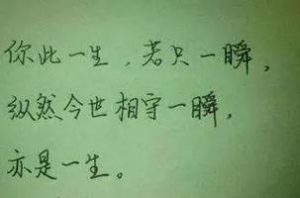 你此一生，若只一瞬，
纵然今世相守一瞬，
亦是一生。